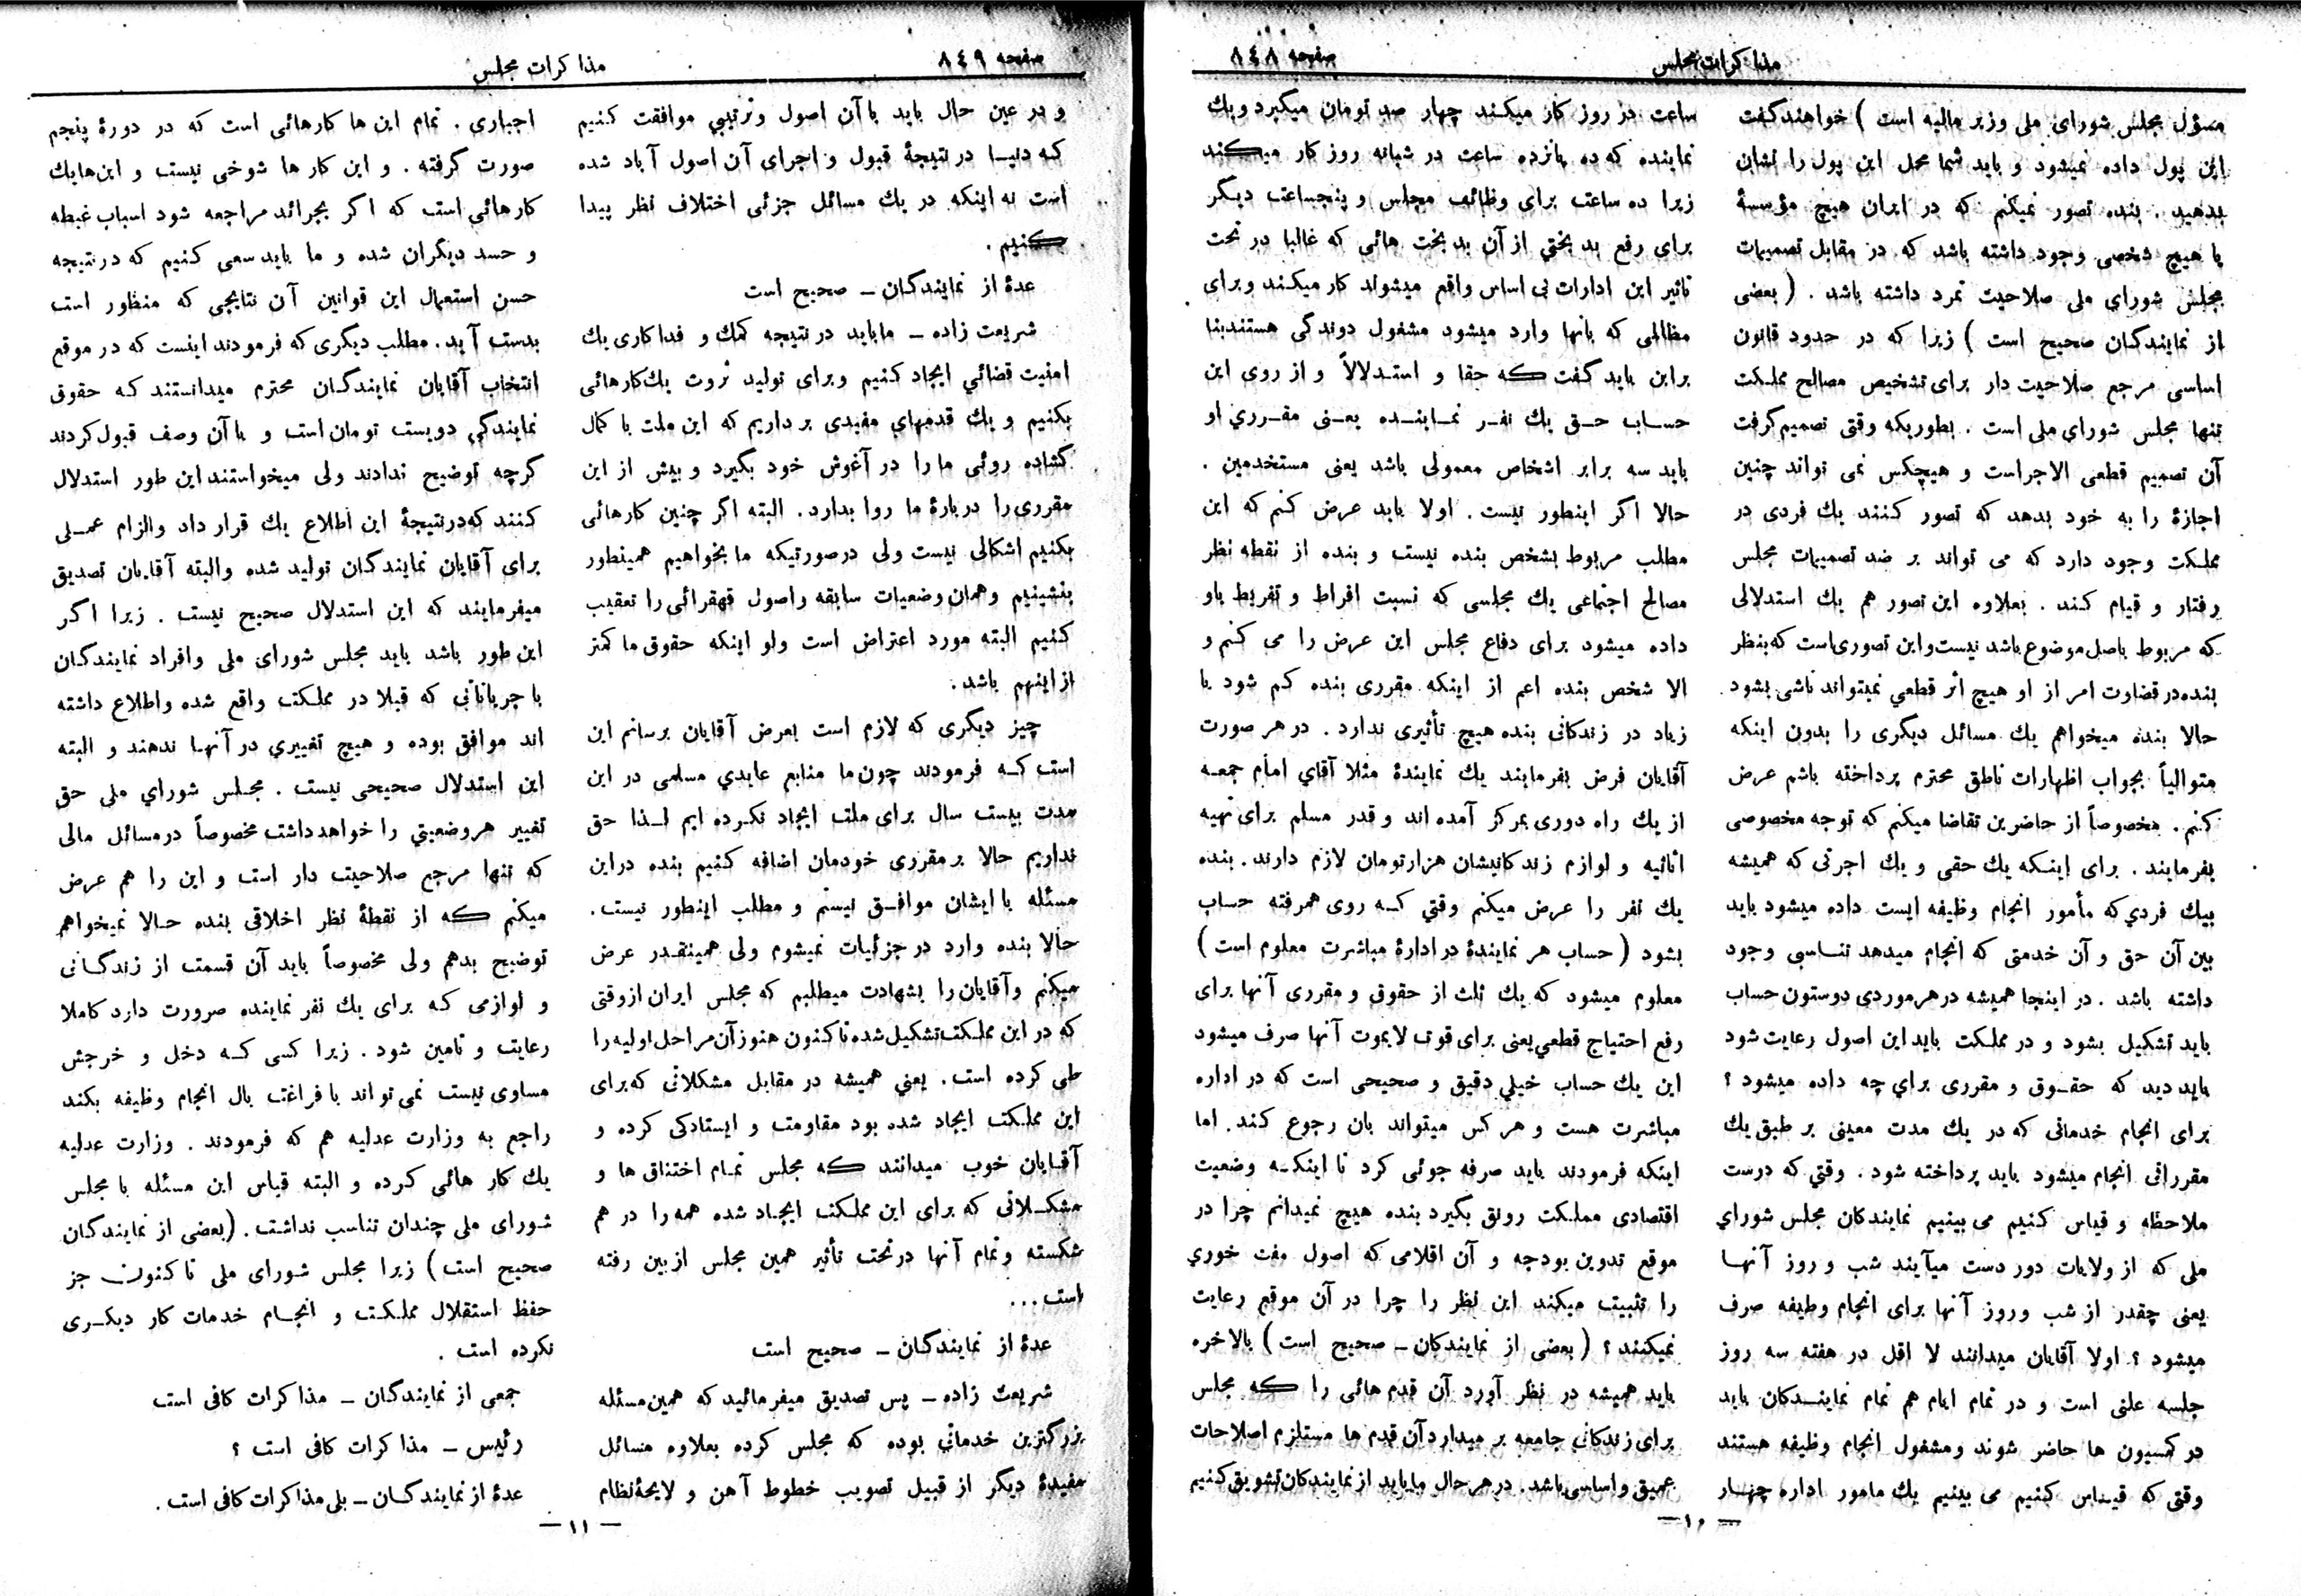 صفحه ٨٤٨
مذاکرات مجلس
مسؤل مجلس شورای ملی وزیر مالیه است ) خواهند گفت
این پول داده نمیشود و باید شما محل این پول را نشان
بدهید . بنده تصور نمیکنم که در ایران هیچ مؤسسهٔ
یا هیچ شخصی وجود داشته باشد که در مقابل تصمیمات
مجلس شورای ملی صلاحیت تمرد داشته باشد . ( بعضی
از نمایندگان صحیح است ) زیرا که در حدود قانون
اساسی مرجع صلاحیت دار برای تشخیص مصالح مملکت
تنها مجلس شورای ملی است . بطوریکه وقتی تصمیم گرفت
آن تصمیم قطعی الاجراست و هیچکس نمی تواند چنین
اجازهٔ را به خود بدهد که تصور کنند یك فردی در
مملکت وجود دارد که می تواند بر ضد تصمیمات مجلس
رفتار و قیام کند . بعلاوه این تصور هم یك استدلالی
که مربوط باصل موضوع باشد نیست و این تصوری است که بنظر
بنده در قضاوت امر از او هیچ اثر قطعی نمیتواند ناشی بشود
حالا بنده میخواهم یك مسائل دیگری را بدون اینکه
متوالیاً بجواب اظهارات ناطق محترم پرداخته باشم عرض
کنم . مخصوصاً از حاضرین تقاضا میکنم که توجه مخصوصی
بفرمایند . برای اینکه یك حقی و یك اجرتی که همیشه
بیك فردی که مأمور انجام وظیفه ایست داده میشود باید
بین آن حق و آن خدمتی که انجام میدهد تناسبی وجود
داشته باشد . در اینجا همیشه در هر موردی دوستون حساب
باید تشکیل بشود و در مملکت باید این اصول رعایت شود
باید دید که حقوق و مقرری برای چه داده میشود ؟
برای انجام خدماتی که در یك مدت معینی بر طبق یك
مقرراتی انجام میشود باید پرداخته شود . وقتی که درست
ملاحظه و قیاس کنیم می بینیم نمایندگان مجلس شورای
ملی که از ولایات دور دست میآیند شب و روز آنها
یعنی چقدر از شب وروز آنها برای انجام وظیفه صرف
میشود ؟ اولا آقایان میدانند لا اقل در هفته سه روز
جلسه علنی است و در تمام ایام هم تمام نمایندکان باید
در کمسیون ها حاضر شوند ومشغول انجام وظیفه هستند
وقتی که قیاس کنیم می بینیم یك مامور اداره چهار
ساعت در روز کار میکند چهار صد تومان میگیرد ویك
نماینده که ده پانزده ساعت در شبانه روز کار میکند
زیرا ده ساعت برای وظائف مجلس و پنجساعت دیگر
برای رفع بد بختی از آن بد بخت هائی که غالبا در تحت
تاثیر این ادارات بی اساس واقع میشوند کار میکند وبرای
مظالمی که بانها وارد میشود مشغول دوندگی هستند بنا
براین باید گفت که حقا و استدلالاً و از روی این
حساب حق یك نفر نماینده یعنی مقرری او
باید سه برابر اشخاص معمولی باشد یعنی مستخدمین .
حالا اگر اینطور نیست . اولا باید عرض کنم که این
مطلب مربوط بشخص بنده نیست و بنده از نقطه نظر
مصالح اجتماعی یك مجلسی که نسبت افراط و تفریط باو
داده میشود برای دفاع مجلس این عرض را می کنم و
الا شخص بنده اعم از اینکه مقرری بنده کم شود یا
زیاد در زندکانی بنده هیچ تأثیری ندارد . در هر صورت
آقایان فرض بفرمایند یك نمایندهٔ مثلا آقای امام جمعه
از یك راه دوری بمرکز آمده اند و قدر مسلم برای تهیه
اثاثیه و لوازم زندکانیشان هزار تومان لازم دارند . بنده
یك نفر را عرض میکنم وقتی که روی همرفته حساب
بشود ( حساب هر نمایندهٔ در ادارهٔ مباشرت معلوم است )
معلوم میشود که یك ثلث از حقوق و مقرری آنها برای
رفع احتیاج قطعی یعنی برای قوت لایموت آنها صرف میشود
این یك حساب خیلی دقیق و صحیحی است که در اداره
مباشرت هست و هر کس میتواند بان رجوع کند . اما
اینکه فرمودند باید صرفه جوئی کرد تا اینکه وضعیت
اقتصادی مملکت رونق بگیرد بنده هیچ نمیدانم چرا در
موقع تدوین بودجه و آن اقلامی که اصول مفت خوری
را تثبیت میکند این نظر را چرا در آن موقع رعایت
نمیکنند ؟ ( بعضی از نمایندکان ـ صحیح است ) بالاخره
باید همیشه در نظر آورد آن قدم هائی را که مجلس
برای زندکانی جامعه بر میدارد آن قدم ها مستلزم اصلاحات
عمیق و اساسی باشد . در هر حال ما باید از نمایندکان تشویق کنیم
— ١٠ —
صفحه ٨٤٩
مذاکرات مجلس
و در عین حال باید با آن اصول وترتیبی موافقت کنیم
که دنیا در نتیجهٔ قبول و اجرای آن اصول آباد شده
است نه اینکه در یك مسائل جزئی اختلاف نظر پیدا
کنیم .
عدهٔ از نمایندگان ـ صحیح است
شریعت زاده ـ ما باید در نتیجه کمك و فداکاری یك
امنیت قضائی ایجاد کنیم وبرای تولید ثروت یك کارهائی
بکنیم و یك قدمهای مفیدی بر داریم که این ملت با کمال
گشاده روئی ما را در آغوش خود بگیرد و بیش از این
مقرری را دربارهٔ ما روا بدارد . البته اگر چنین کارهائی
بکنیم اشکالی نیست ولی درصورتیکه ما بخواهیم همینطور
بنشینیم وهمان وضعیات سابقه راصول قهقرائی را تعقیب
کنیم البته مورد اعتراض است ولو اینکه حقوق ما کمتر
از اینهم باشد .
چیز دیگری که لازم است بعرض آقایان برسانم این
است که فرمودند چون ما منابع عایدی مسلمی در این
مدت بیست سال برای ملت ایجاد نکرده ایم لذا حق
نداریم حالا بر مقرری خودمان اضافه کنیم بنده دراین
مسئله با ایشان موافق نیستم و مطلب اینطور نیست .
حالا بنده وارد در جزئیات نمیشوم ولی همینقدر عرض
میکنم وآقایان را بشهادت میطلبم که مجلس ایران ازوقتی
که در این مملکت تشکیل شده تاکنون هنوز آن مراحل اولیه را
طی کرده است . یعنی همیشه در مقابل مشکلاتی که برای
این مملکت ایجاد شده بود مقاومت و ایستادکی کرده و
آقایان خوب میدانند که مجلس تمام اختناق ها و
مشکلاتی که برای این مملکت ایجاد شده همه را در هم
شکسته وتمام آنها در تحت تأثیر همین مجلس از بین رفته
است...
عدهٔ از نمایندگان ـ صحیح است
شریعت زاده ـ پس تصدیق میفرمائید که همین مسئله
بزرگترین خدماتی بوده که مجلس کرده بعلاوه مسائل
مفیدهٔ دیگر از قبیل تصویب خطوط آهن و لایحهٔ نظام
اجباری . تمام این ها کارهائی است که در دورهٔ پنجم
صورت گرفته . و این کار ها شوخی نیست و این هایك
کارهائی است که اگر بجرائد مراجعه شود اسباب غبطه
و حسد دیگران شده و ما باید سعی کنیم که در نتیجه
حسن استعمال این قوانین آن نتایجی که منظور است
بدست آید . مطلب دیگری که فرمودند اینست که در موقع
انتخاب آقایان نمایندگان محترم میدانستند که حقوق
نمایندگی دویست تومان است و با آن وصف قبول کردند
گرچه توضیح ندادند ولی میخواستند این طور استدلال
کنند که در نتیجهٔ این اطلاع یك قرار داد والزام عملی
برای آقایان نمایندگان تولید شده والبته آقایان تصدیق
میفرمایند که این استدلال صحیح نیست . زیرا اگر
این طور باشد باید مجلس شورای ملی وافراد نمایندگان
با جریاناتی که قبلا در مملکت واقع شده واطلاع داشته
اند موافق بوده و هیچ تغییری در آنها ندهند و البته
این استدلال صحیحی نیست . مجلس شورای ملی حق
تغییر هروضعیتی را خواهد داشت مخصوصاً در مسائل مالی
که تنها مرجع صلاحیت دار است و این را هم عرض
میکنم که از نقطهٔ نظر اخلاقی بنده حالا نمیخواهم
توضیح بدهم ولی مخصوصاً باید آن قسمت از زندگانی
و لوازمی که برای یك نفر نماینده ضرورت دارد کاملا
رعایت و تامین شود . زیرا کسی که دخل و خرجش
مساوی نیست نمی تواند با فراغت بال انجام وظیفه بکند
راجع به وزارت عدلیه هم که فرمودند . وزارت عدلیه
یك کار هائی کرده و البته قیاس این مسئله با مجلس
شورای ملی چندان تناسب نداشت . (بعضی از نمایندگان
صحیح است) زیرا مجلس شورای ملی تا کنون جز
حفظ استقلال مملکت و انجام خدمات کار دیکری
نکرده است .
جمعی از نمایندگان ـ مذاکرات کافی است
رئیس ـ مذاکرات کافی است ؟
عدهٔ از نمایندگان ـ بلی مذاکرات کافی است .
— ١١ —